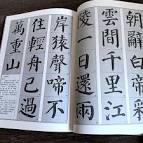 辭白帝彩
雲間千里江
陵一日還兩
岸猿聲啼不
住輕舟已過
萬重山